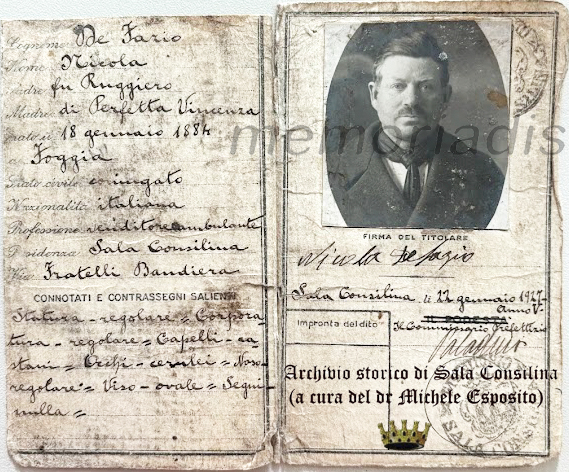 Cognome De Fazio
Nome Nicola
Padre fu Ruggiero
Madre di Perfetta Vincenza
nato il 18 gennaio 1884
a Foggia
Stato civile coniugato
Nazionalità italiana
Professione venditore ambulante
Residenza Sala Consilina
Via Fratelli Bandiera
CONNOTATI E CONTRASSEGNI SALIENTI
Statura - regolare = Corpora-
tura - regolare = Capelli - ca-
stani = Occhi - cerulei = Naso -
regolare = Viso - ovale = Segni -
nulla =
memoriadis
FIRMA DEL TITOLARE
Nicola De Fazio
Sala Consilina, li 22 gennaio 1927
Anno V°
PODESTÀ
Impronta del dito
Il Commissario Prefettizio
Archivio storico di Sala Consilina
(a cura del dr Michele Esposito)